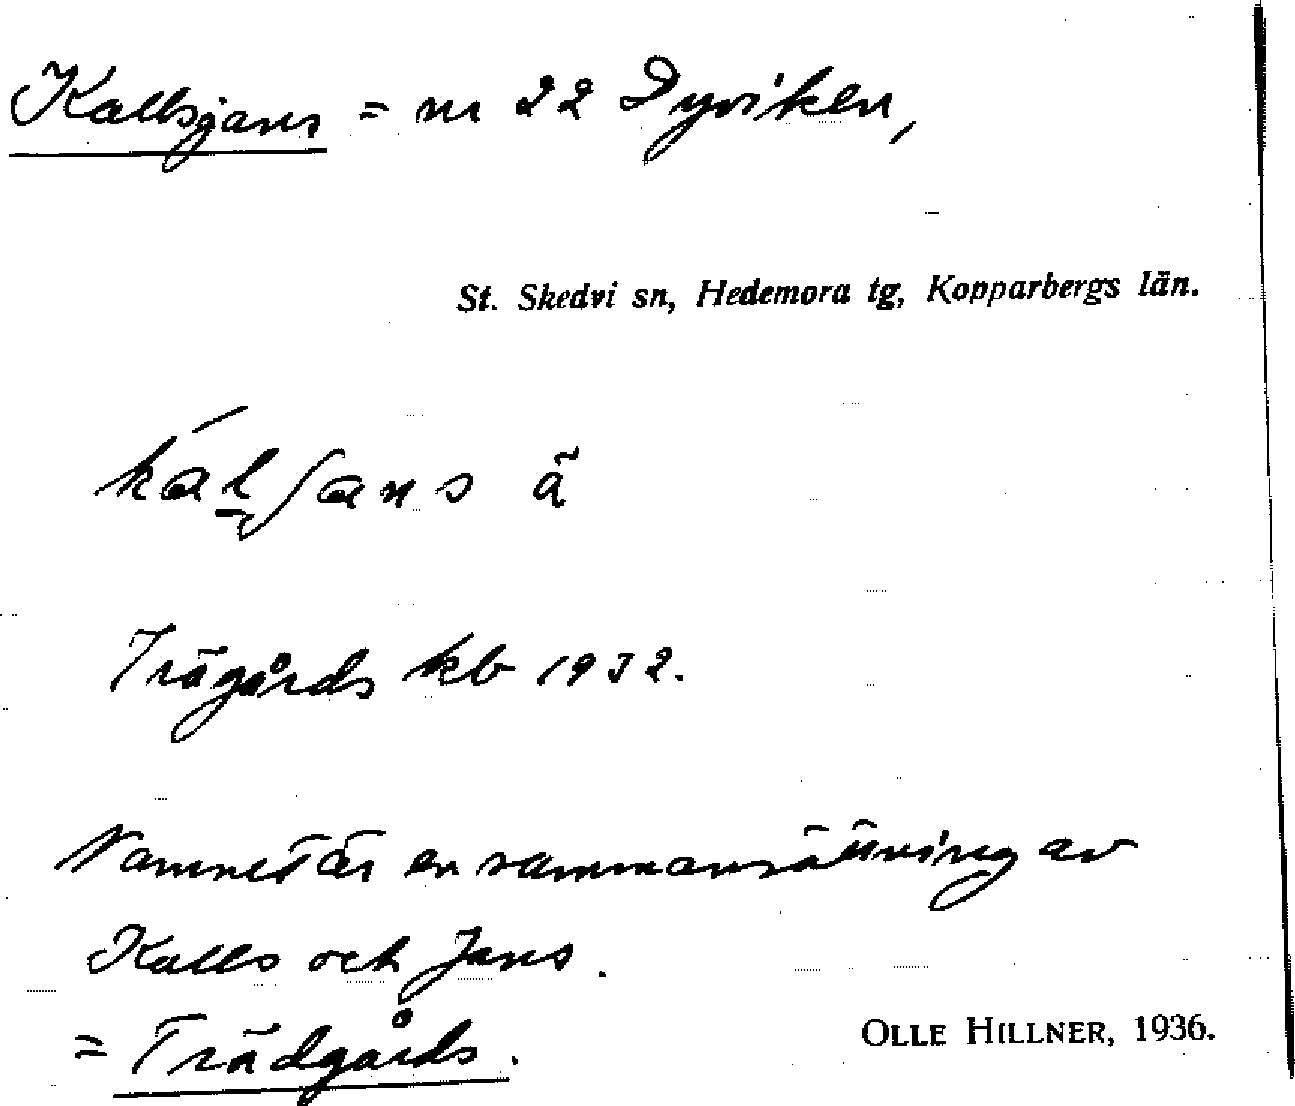 Kallsjans = nr 22 Dyviken,
St. Skedvi sn, Hedemora tg, Kopparbergs län.
ka̱lʃans ä
Trägårds kb 1932.
Namnet är en sammansättning av
Kalls och Jans.
= Trädgårds.
OLLE HILLNER, 1936.